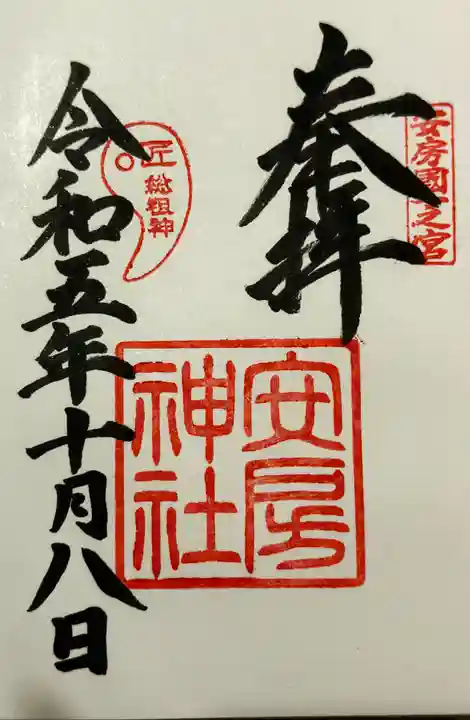 安房國一之宮
奉拝
安房
神社
匠
総祖神
令和五年十月八日